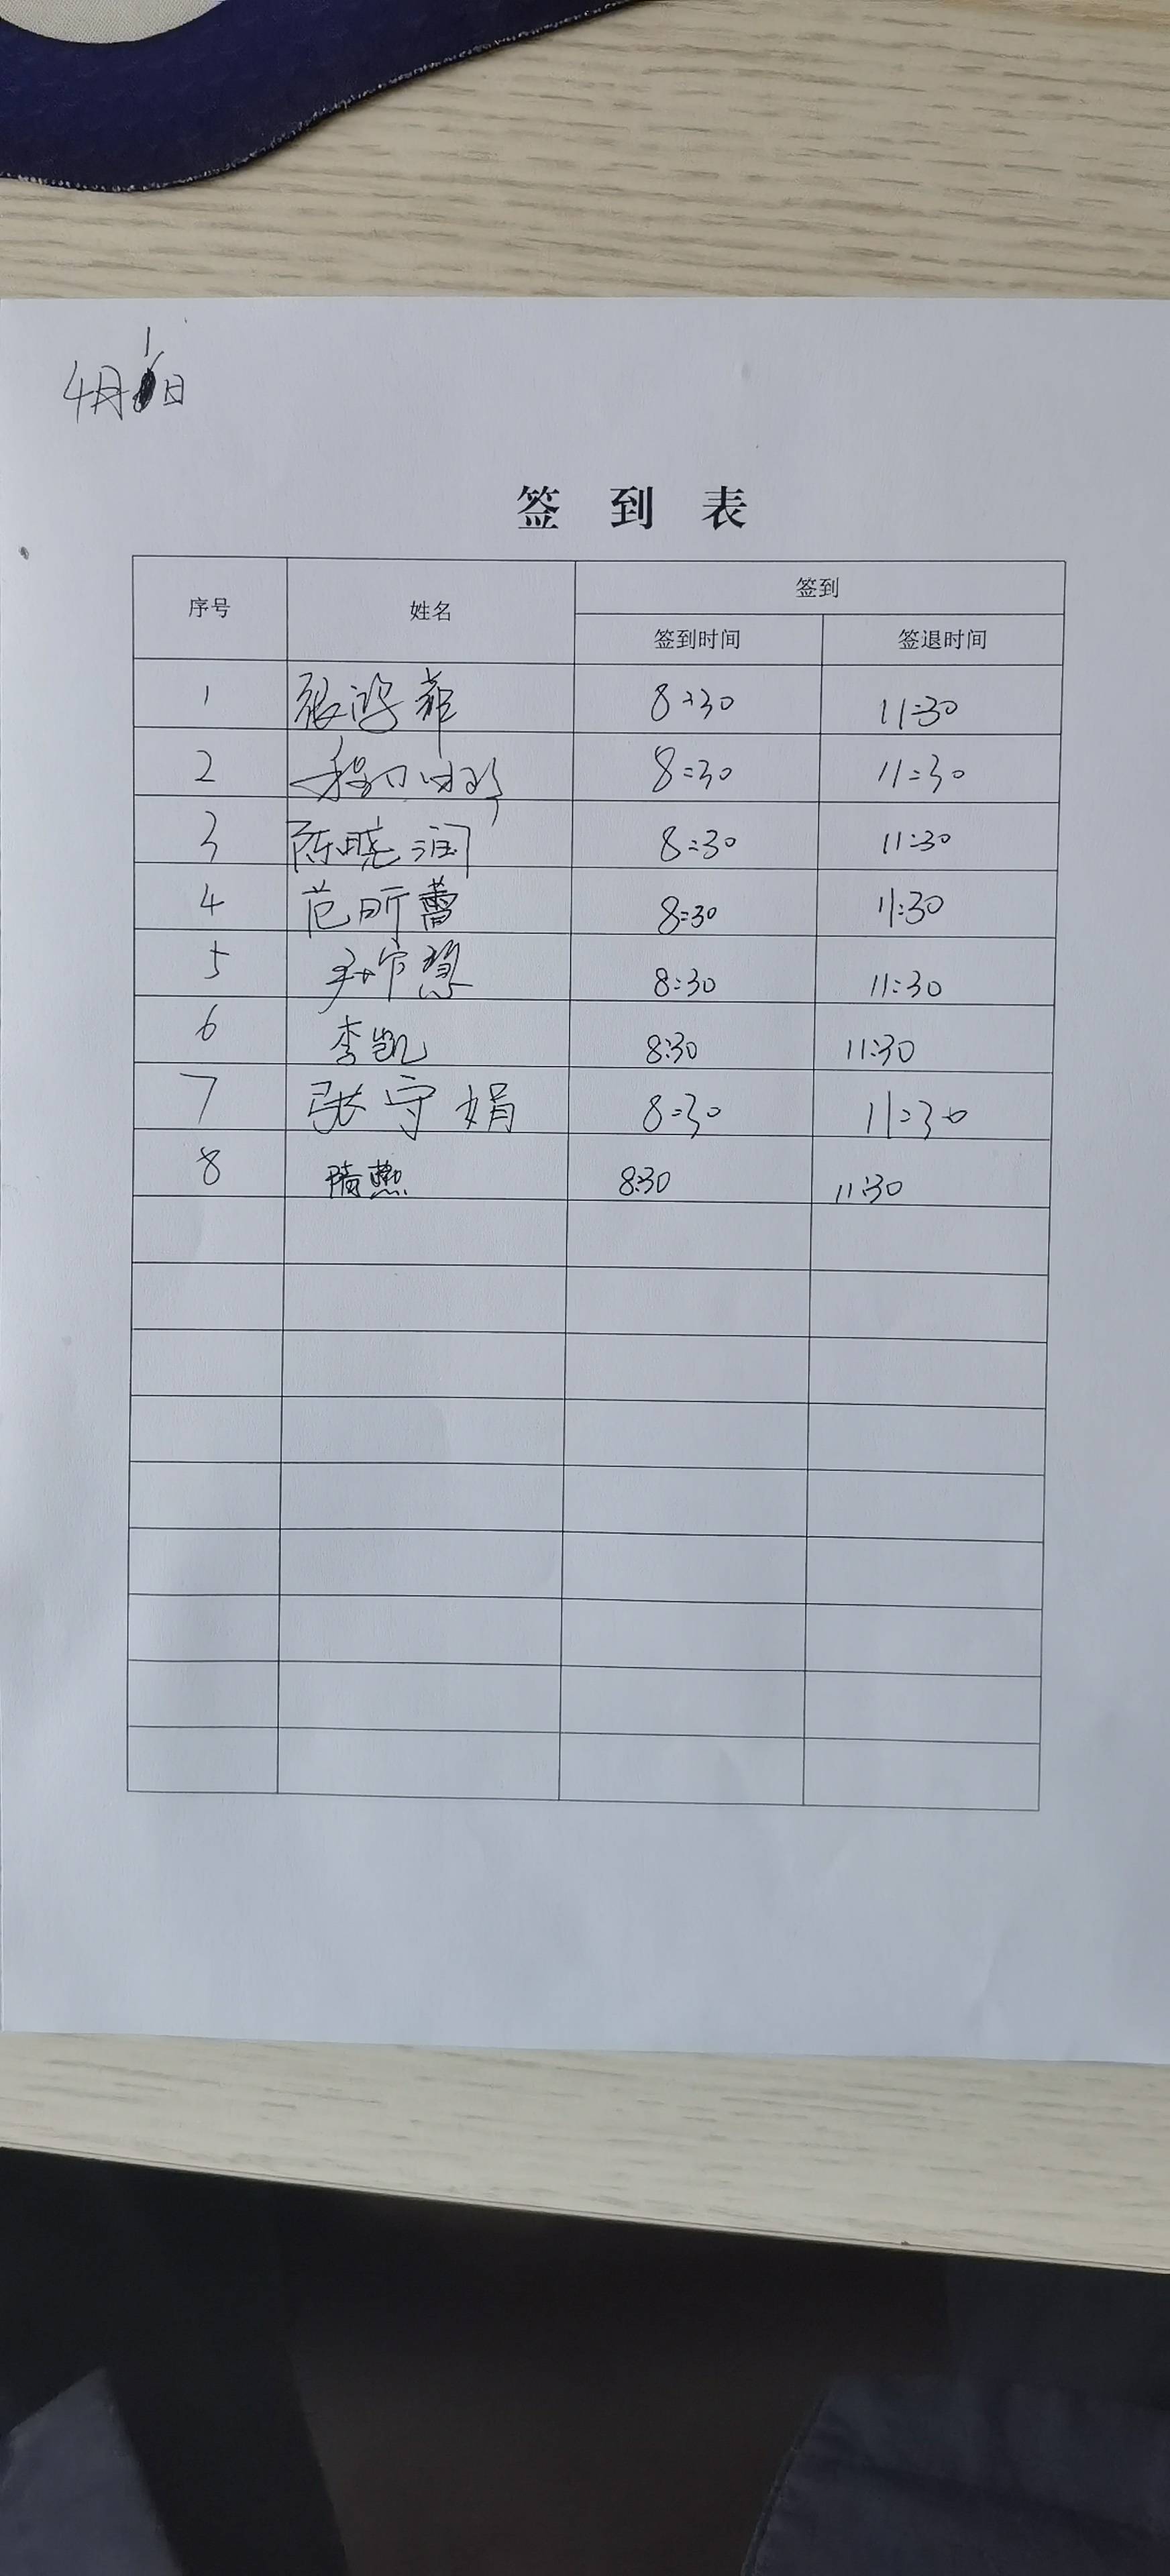 4月1日
签到表
序号 姓名 签到
签到时间 签退时间
1 张鸿菲 8:30 11:30
2 8:30 11:30
3 陈晓润 8:30 11:30
4 范昕蕾 8:30 11:30
5 8:30 11:30
6 李凯 8:30 11:30
7 张守娟 8:30 11:30
8 隋燕 8:30 11:30